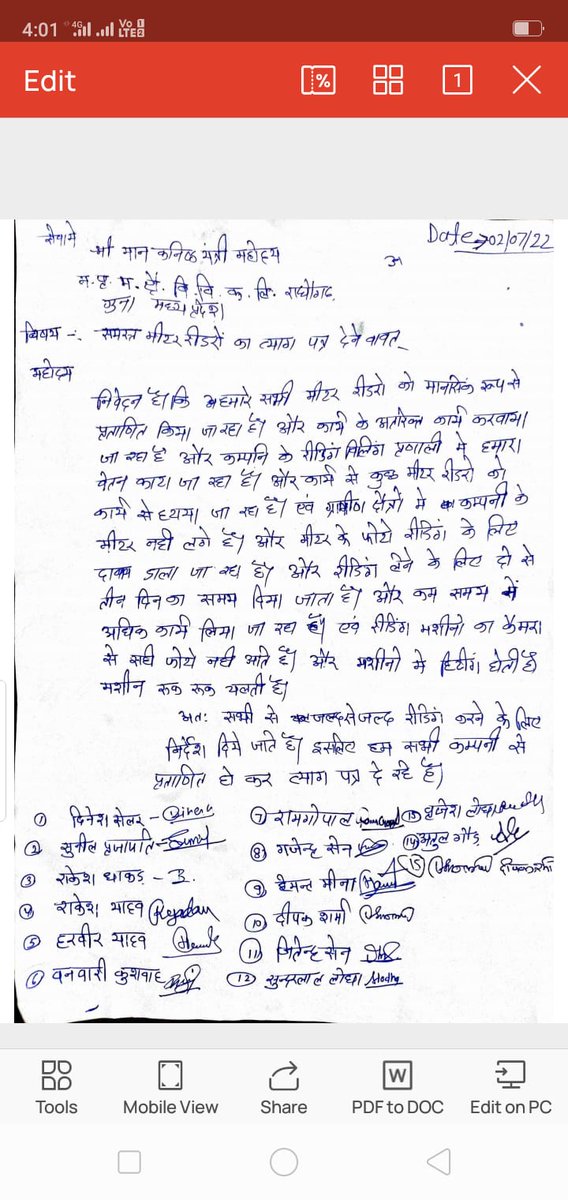 4:01
4G
Vo 1
LTE 2
Edit
%
1
सेवामे
Date → 02/07/22
श्री मान कनिष्ठ यंत्री महोदय
म. प्र. म. क्षे. वि. वि. क. लि. राघौगढ
गुना मध्य प्रदेश।
विषय -: समस्त मीटर रीडरों का त्याग पत्र देने वावत
महोदय
निवेदन है। कि हमारे सभी मीटर रीडरो को मानसिक रूप से
प्रताणित किया जा रहा है। और कार्य के अतिरिक्त कार्य करवाया
जा रहा है और कम्पनि के रीडिंग विलिंग प्रणाली मे हमारा
वेतन काटा जा रहा है। और कार्य से कुछ मीटर रीडरो को
कार्य से हटाया जा रहा है। एवं ग्रामीण क्षेत्रो मे कम्पनी के
मीटर नही लगे है। और मीटर के फोटो रीडिंग के लिए
दावाब डाला जा रहा है। और रीडिंग लेने के लिए दो से
तीन दिन का समय दिया जाता है। और कम समय में
अधिक कार्य लिया जा रहा है। एवं रीडिंग मशीनो का कैमरा
से सही फोटो नही आते है। और मशीनो मे हिटींग होती है।
मशीन रूक रूक चलती है।
अतः सभी से जल्द से जल्द रीडिंग करने के लिए
निर्देश दिये जाते है। इसलिए हम सभी कम्पनी से
प्रताणित हो कर त्याग पत्र दे रहे है।
① दिनेश सेलर - Dinesh
② सुनील प्रजापति - Sunil
③ राकेश धाकड़ -
④ राकेश यादव
⑤ हरवीर यादव
⑥ वनवारी कुशवाह
⑦ रामगोपाल
⑧ गजेन्द्र सेन
⑨ हेमन्त मीना
⑩ दीपक शर्मा
⑪ जितेन्द्र सेन
⑫ सुन्दरलाल लोधा Lodha
⑬ बृजेश लोधा
⑭ अतुल गौड़
⑮
Tools
Mobile View
Share
W
PDF to DOC
Edit on PC